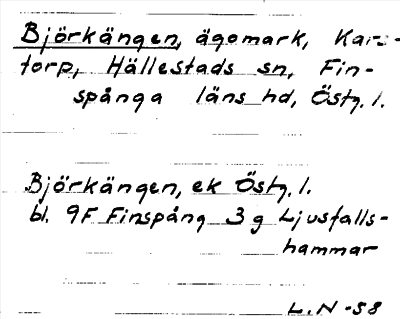 Björkängen, ägomark, Kars-
torp, Hällestads sn, Fin-
spånga läns hd, Östg. l.
Björkängen, ek Östg. l.
bl. 9F Finspång 3 g Ljusfalls-
hammar
L. N -58